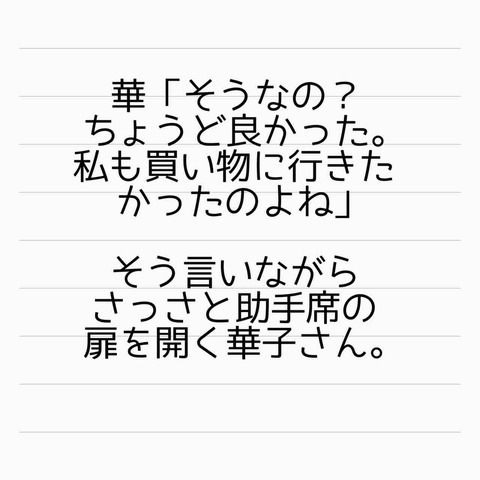 華「そうなの？
ちょうど良かった。
私も買い物に行きた
かったのよね」
そう言いながら
さっさと助手席の
扉を開く華子さん。